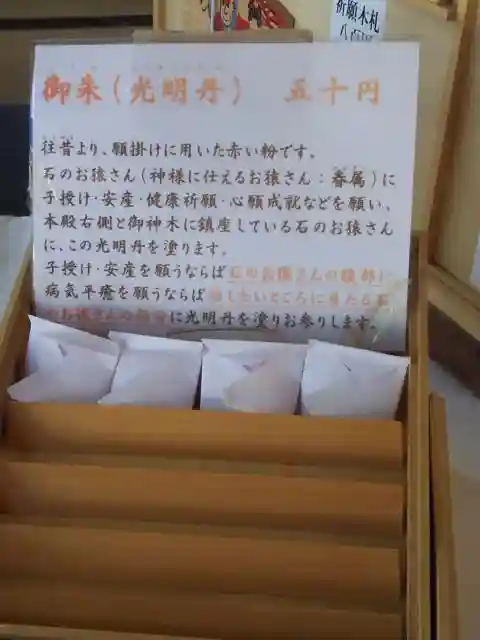 祈願木札
御朱(光明丹) 五十円
往昔より、願掛けに用いた赤い粉です。
石のお猿さん(神様に仕えるお猿さん:眷属)に
子授け・安産・健康祈願・心願成就などを願い、
本殿右側と御神木に鎮座している石のお猿さん
に、この光明丹を塗ります。
子授け・安産を願うならば石のお猿さんの腹部に
病気平癒を願うならば治したいところに見たる石
のお猿さんの部分に光明丹を塗りお参りします。